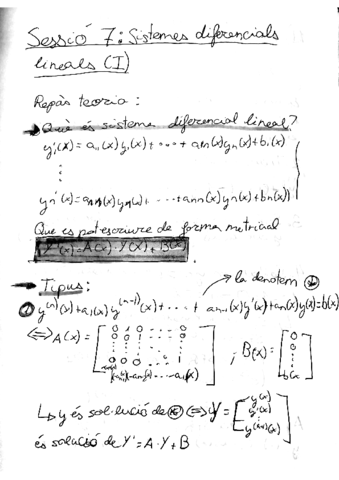 Sessió 7: Sistemes diferencials
lineals (I)
Repàs teoria:
→ Què és sistema diferencial lineal?
y'₁(x) = a₁₁(x)y₁(x) + ····· + a₁n(x)yn(x) + b₁(x)
⋮
yn'(x) = an₁(x)y₁(x) + ····· + ann(x)yn(x) + bn(x)
Que es pot escriure de forma matricial
Y'(x) = A(x) · Y(x) + B(x) .
→ la denotem ⊛
→ Tipus:
① y⁽ⁿ⁾(x) + a₁(x)y⁽ⁿ⁻¹⁾(x) + ····· + an-1(x)y'(x) + an(x)y(x) = b(x)
⇔ A(x) = [ ] ; B(x) = [ 0 0 ⋮ b(x) ]
↳ y és sol·lució de ⊛ ⇔ Y = [ y(x) y'(x) ⋮ y⁽ⁿ⁻¹⁾(x) ]
és solució de Y' = A · Y + B